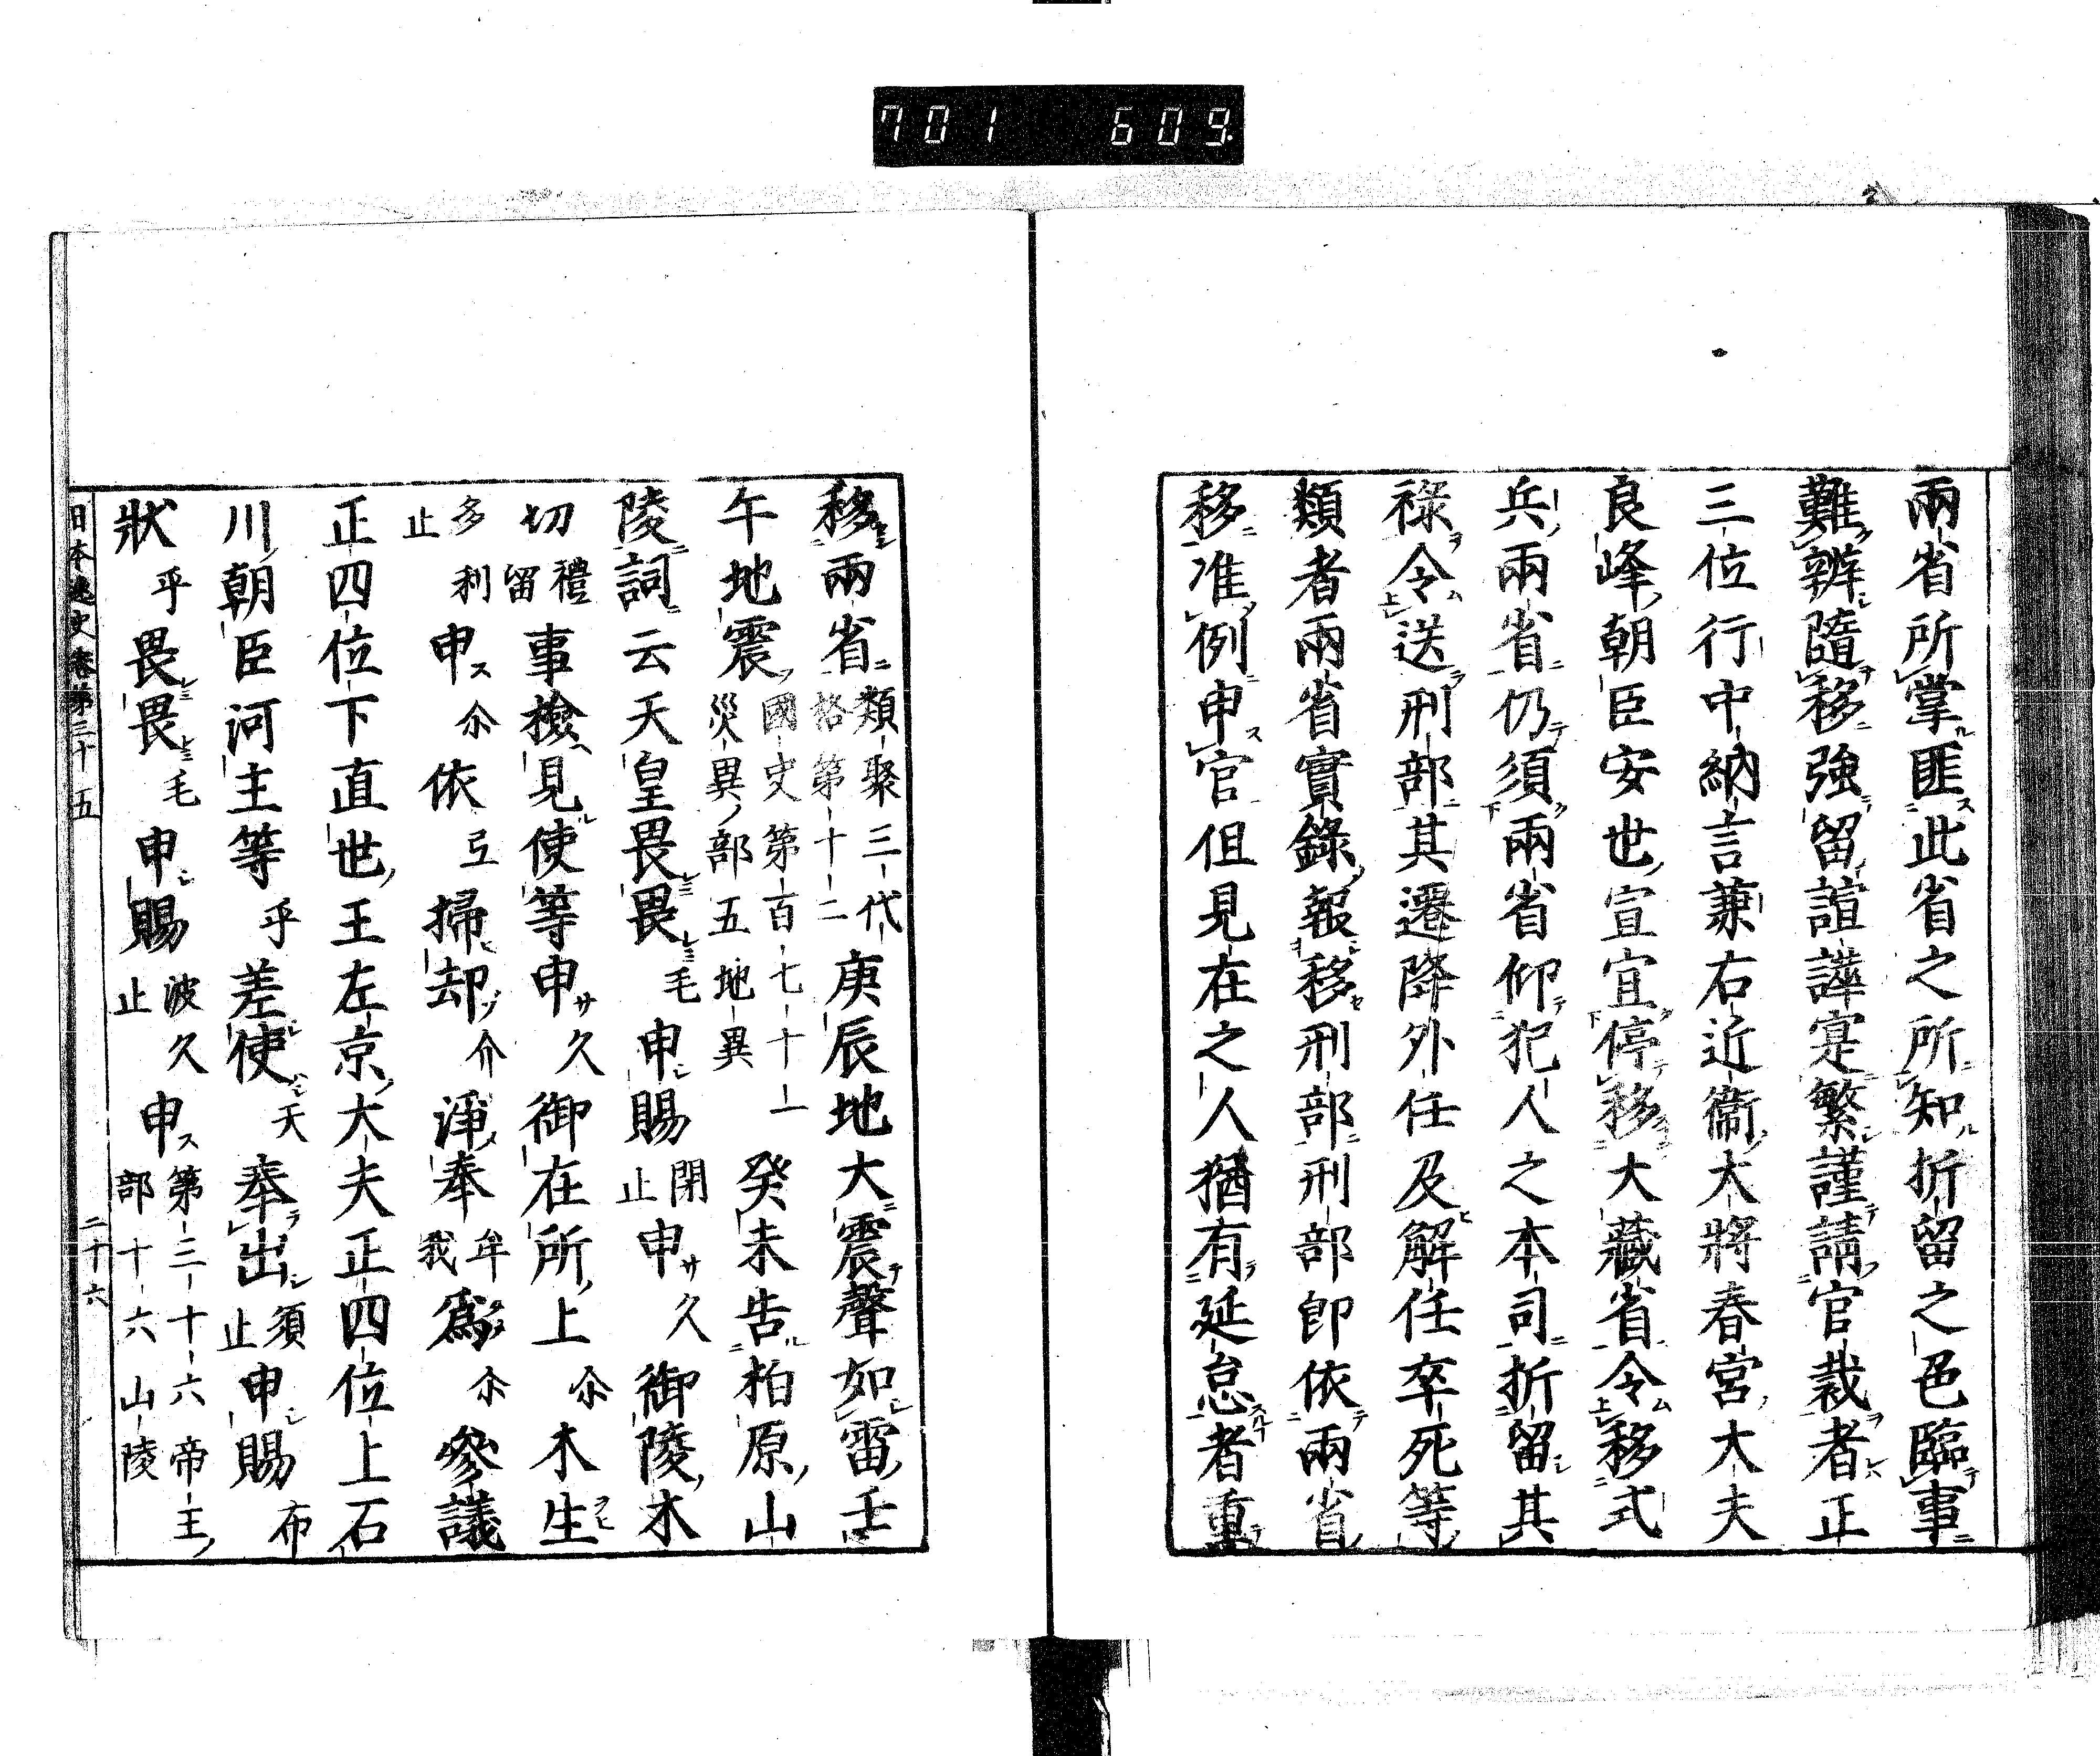 701 609.
兩省所掌匪此省之所知折留之色臨事
難辨隨移強留誼譁寔繁謹請官裁者正
三位行中納言兼右近衞大將春宮大夫
良峰朝臣安世宣宜停移大藏省令移式
兵兩省仍須兩省仰犯人之本司折留其
祿令送刑部其遷降外任及解任卒死等
類者兩省實錄報移刑部刑部卽依兩省
移准例申官但見在之人猶有延怠者重
移兩省類聚三代格第十二庚辰地大震聲如雷壬
午地震國史第百七十一災異部五地異癸未告柏原山
陵詞云天皇畏畏毛申賜閉止申久御陵木
切禮留事撿見使等申久御在所上尒木生
多利止申尒依弖掃却介淨奉牟我爲尒參議
正四位下直世王左京大夫正四位上石
川朝臣河主等乎差使天奉出須止申賜布
狀乎畏畏毛申賜波久止申第三十六帝王部十六山陵
日本逸史卷第三十五
二十六